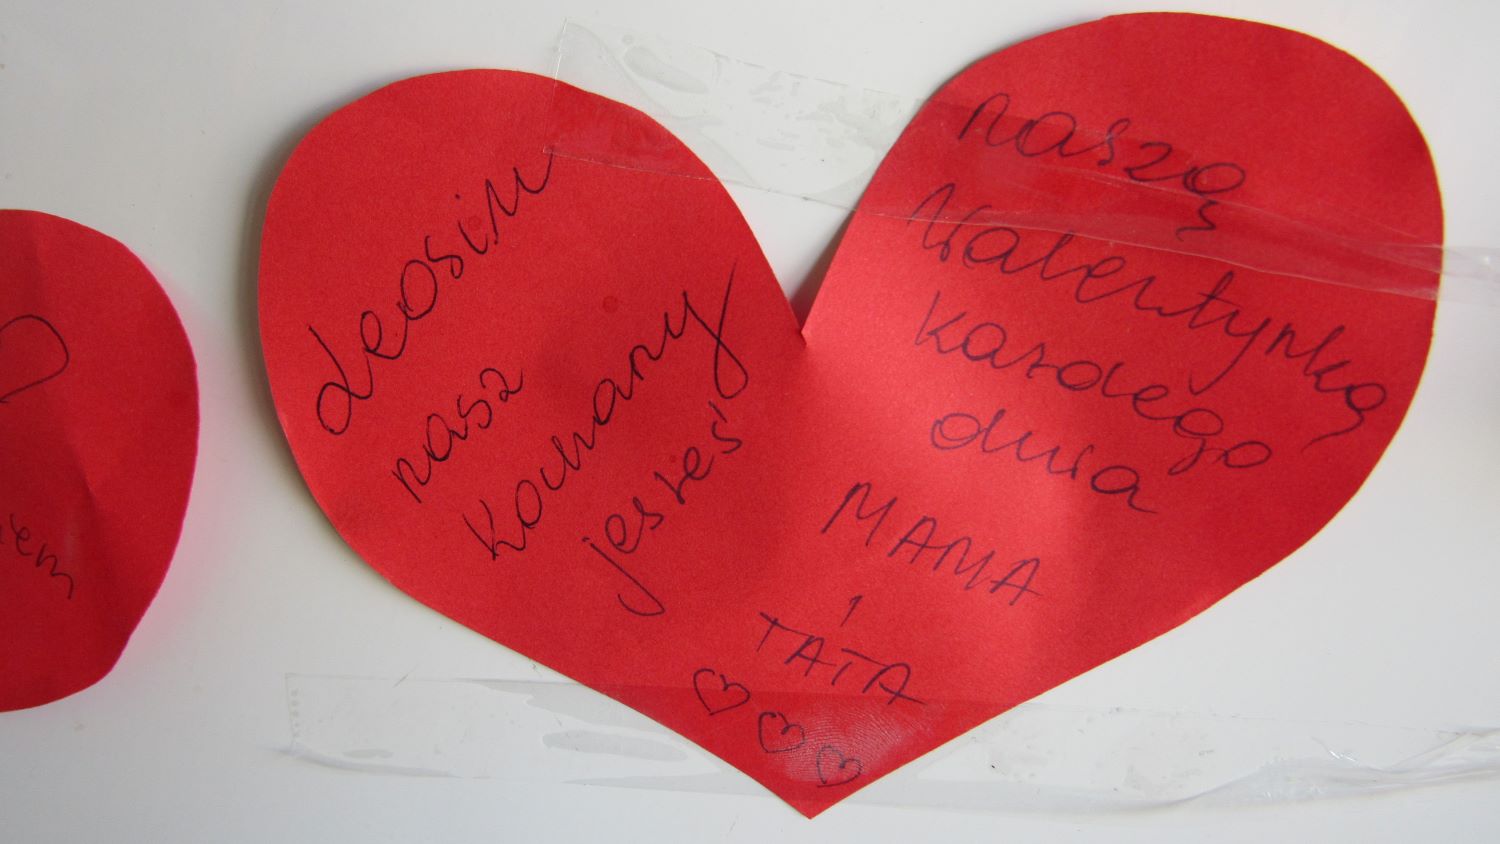 Leosiu
nasz
kochany
jesteś
naszą
Walentynką
każdego
dnia
MAMA
i
TATA